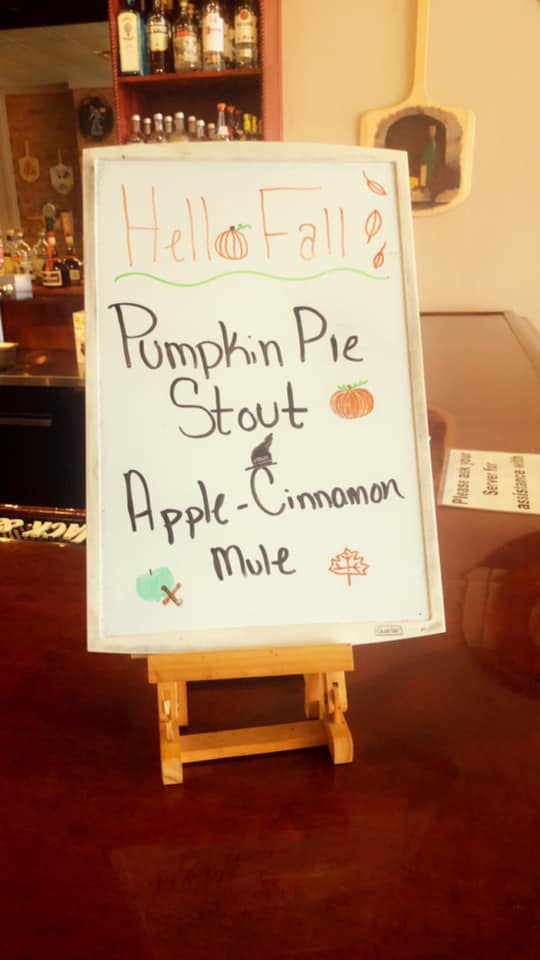 Hello Fall!
Pumpkin Pie
Stout
Apple-Cinnamon
Mule
Quartet
Please ask your
Server for
assistance with